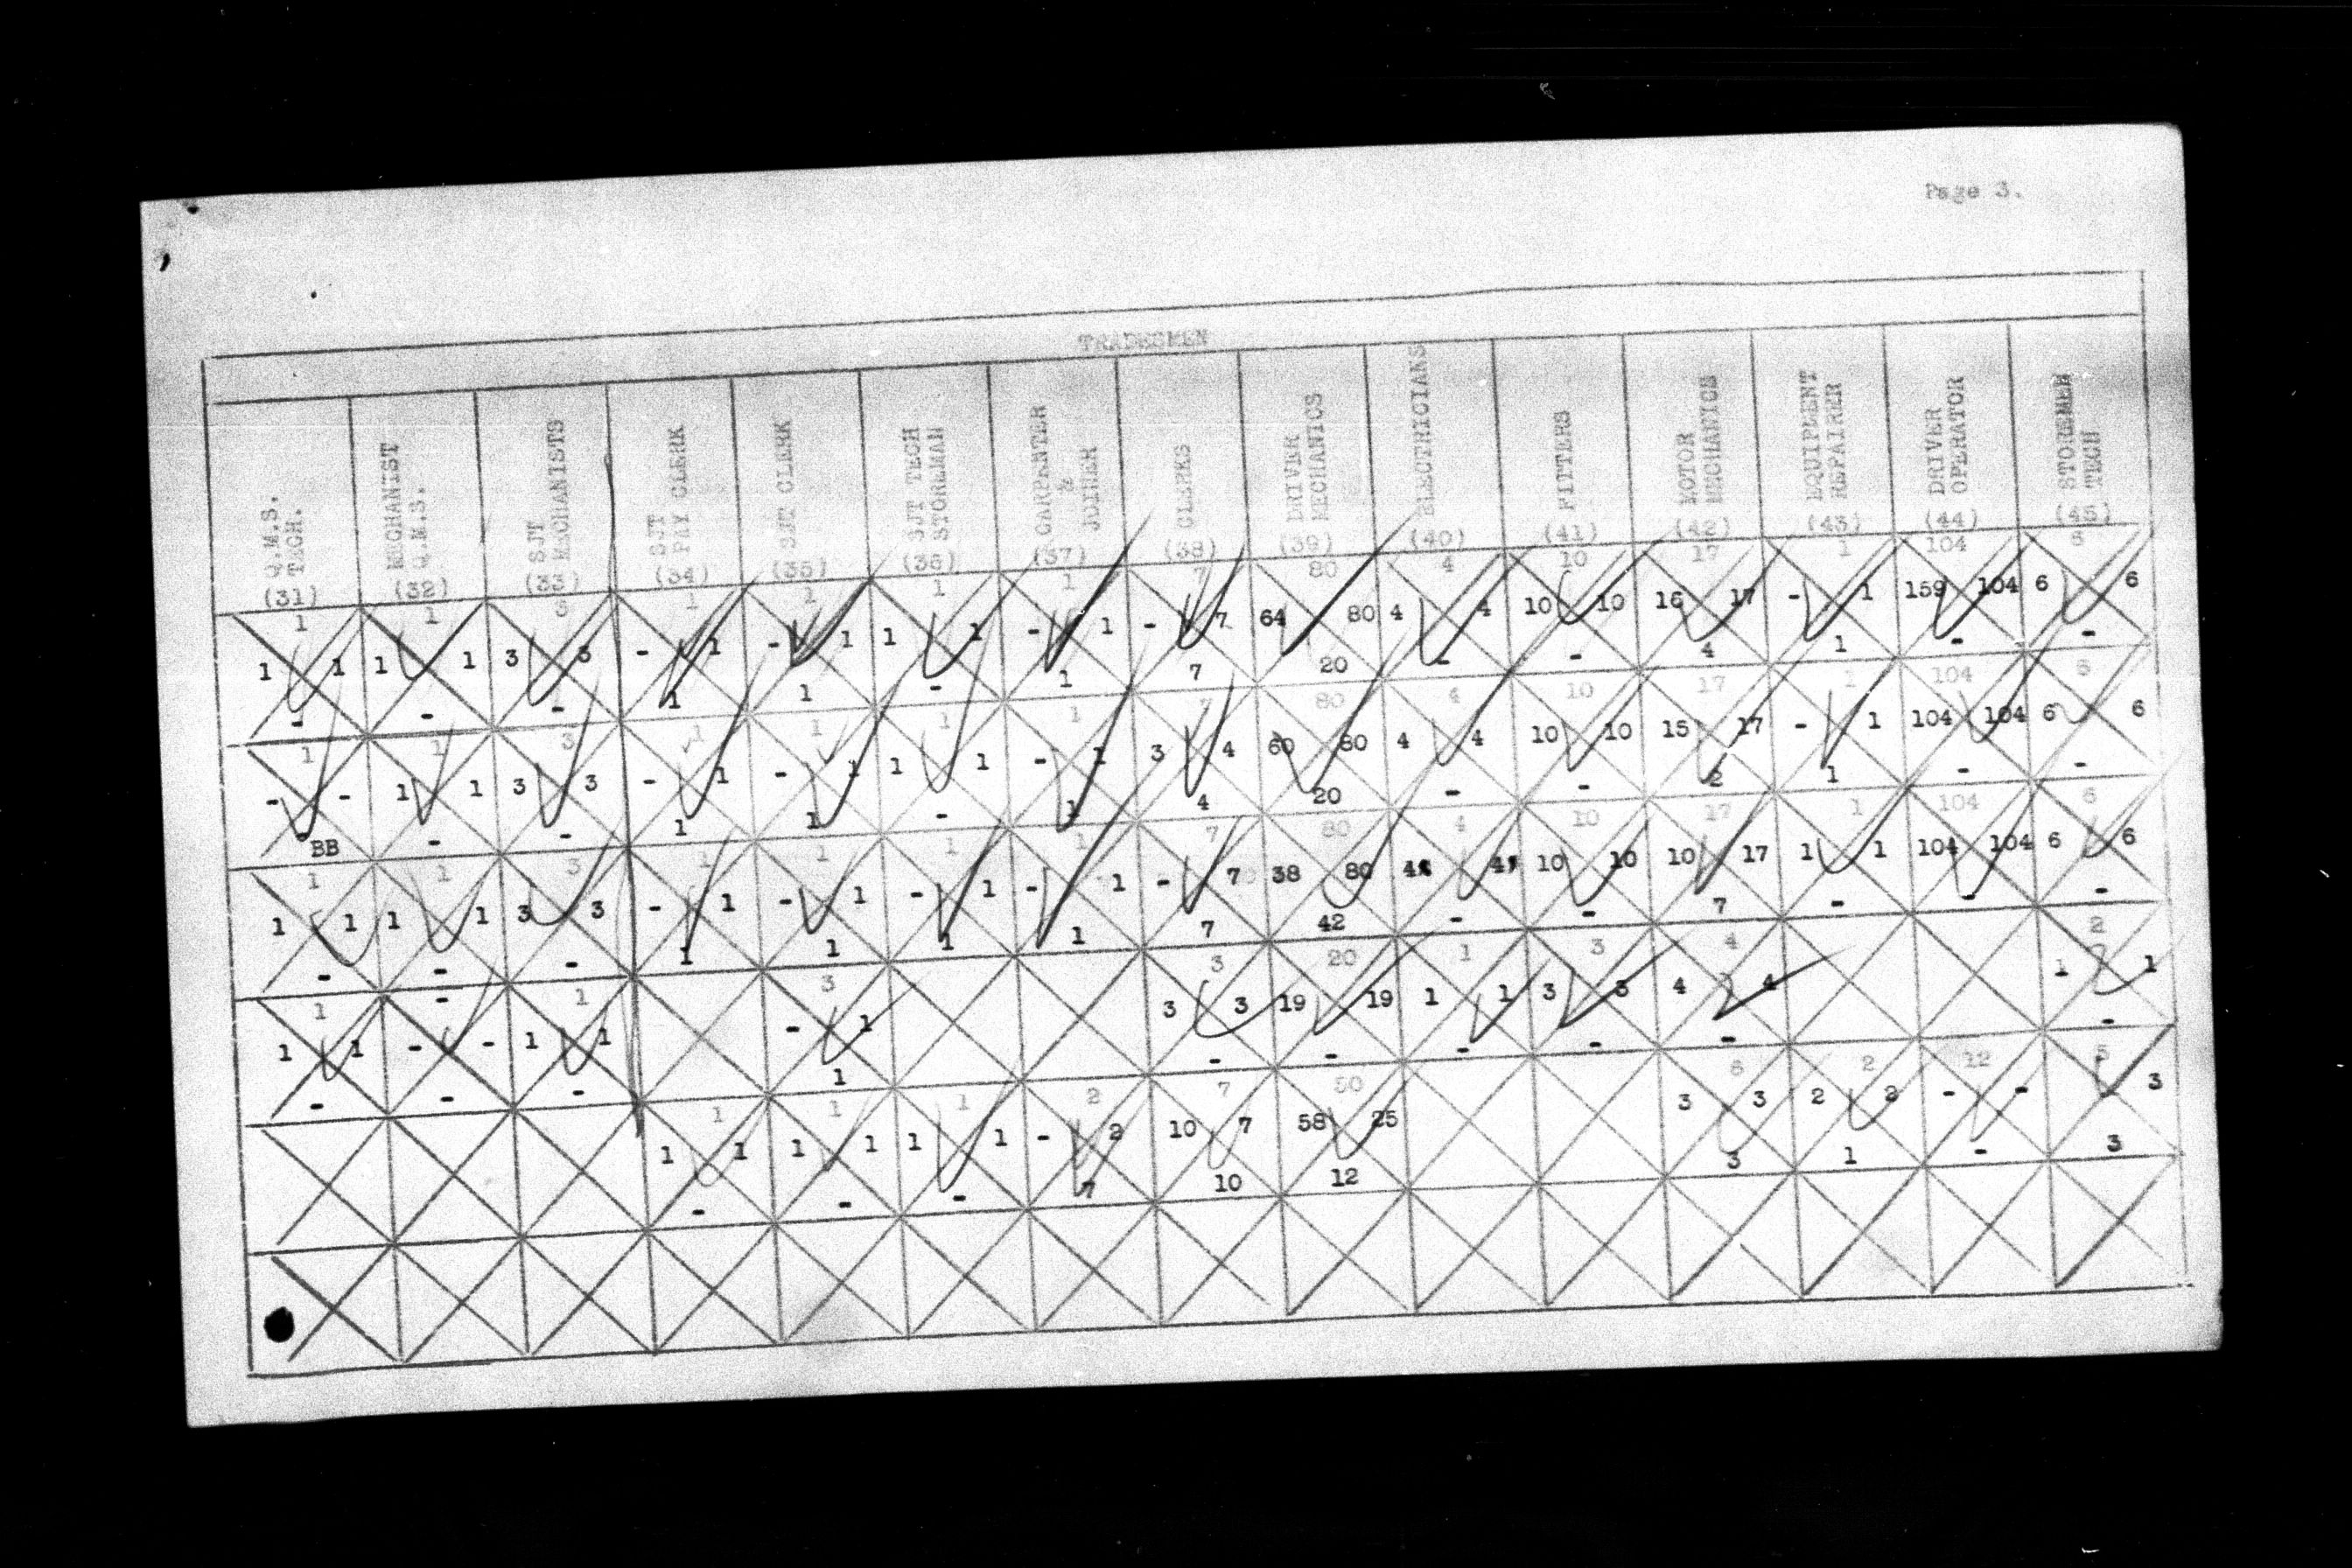 Page 3.
TRADESMEN
Q.M.S. TECH. (31)
MECHANIST Q.M.S. (32)
SJT MECHANISTS (33)
SJT PAY CLERK (34)
SJT CLERK (35)
SJT TECH STOREMAN (36)
CARPENTER & JOINER (37)
CLERKS (38)
DRIVER MECHANICS (39)
ELECTRICIANS (40)
FITTERS (41)
MOTOR MECHANICS (42)
EQUIPMENT REPAIRER (43)
DRIVER OPERATOR (44)
STOREMEN TECH (45)
1 1 1 1 1 1 1 7 80 4 10 17 1 104 6
1 1 1 1 3 3 - 1 - 1 1 1 - 1 - 7 64 80 4 4 10 10 16 17 - 1 159 104 6 6
- - - 1 1 - 1 7 20 - - 4 1 - -
1 1 3 1 1 1 1 7 80 4 10 17 1 104 6
- - 1 1 3 3 - 1 - 1 1 1 - 1 3 4 60 80 4 4 10 10 15 17 - 1 104 104 6 6
BB - - 1 1 - 1 4 20 - - 2 1 - -
1 1 3 1 1 1 1 7 80 4 10 17 1 104 6
1 1 1 1 3 3 - 1 - 1 - 1 - 1 - 7 38 80 4 4 10 10 10 17 1 1 104 104 6 6
- - - 1 1 1 1 7 42 - - 7 - - -
1 - 1 3 3 20 1 3 4 2
1 1 - - 1 1 - 1 3 3 19 19 1 1 3 3 4 4 1 1
- - - 1 - - - - - -
1 1 1 2 7 50 6 2 12 5
1 1 1 1 1 1 - 2 10 7 58 25 3 3 2 2 - - 3
- - - 7 10 12 3 1 - 3